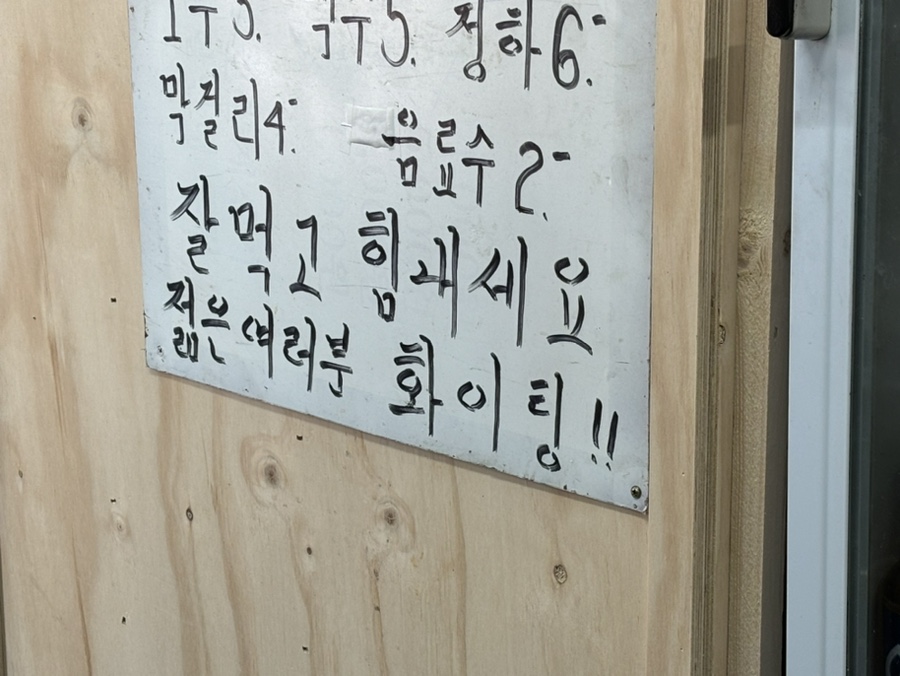 정하 6-
막걸리 4- 음료수 2-
잘 먹고 힘내세요
젊은 여러분 화이팅!!